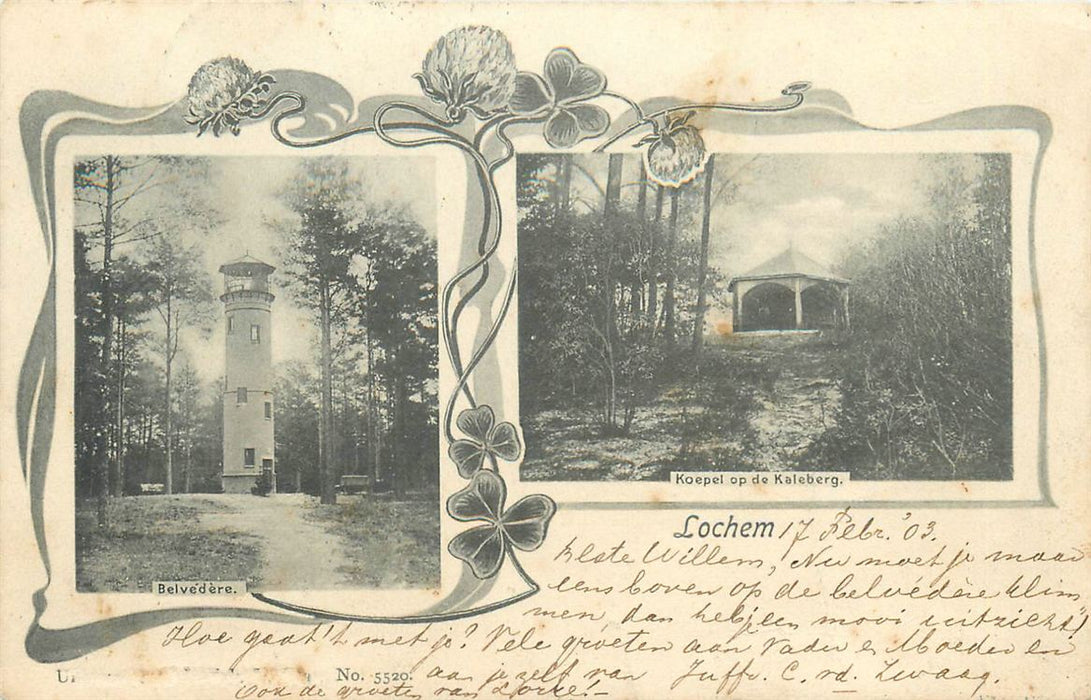 Belvédère.
Koepel op de Kaleberg.
Lochem 17 Febr. '03.
Beste Willem, Nu moet je maar
eens boven op de belvédère klim
men, dan heb je een mooi uitzicht!
Hoe gaat 't met je? Vele groeten aan Vader en Moeder en
No. 5520. aan je zelf van Juffr. C. v.d. Zwaag.
Ook de groeten van